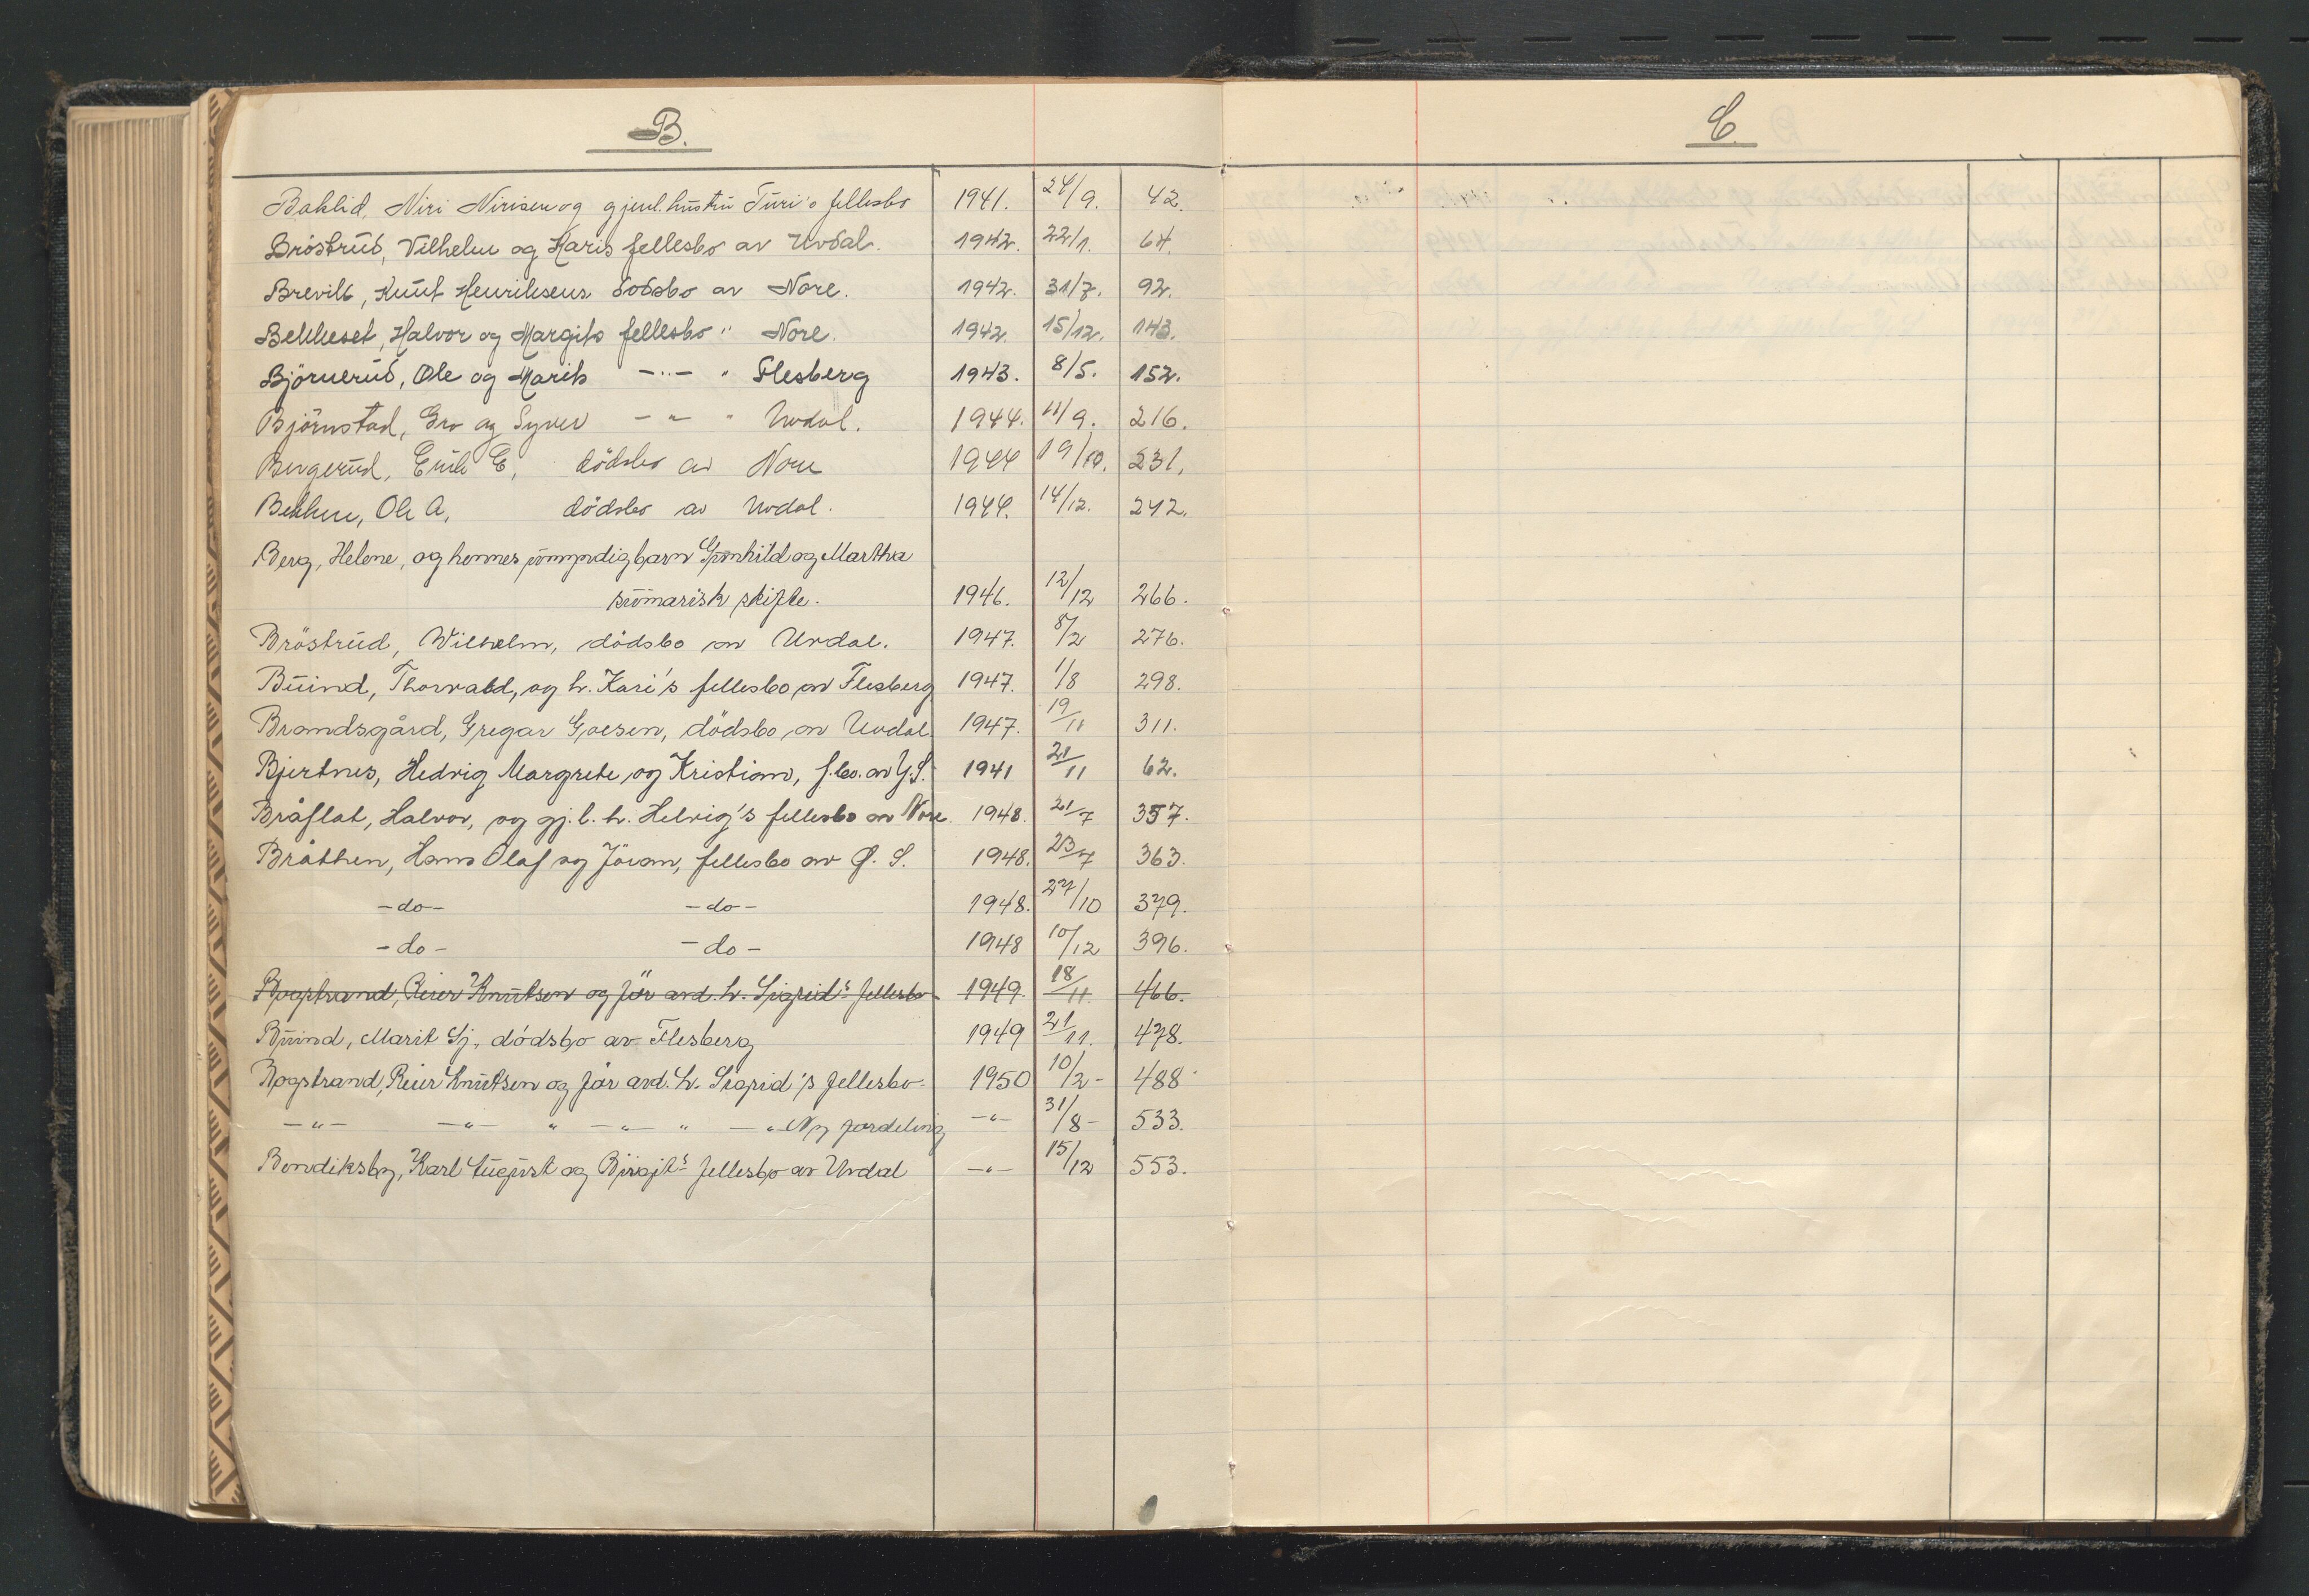 B.
Baklid, Niri Nirisen og gjenl. hustru Turi's fellesbo 1941. 24/9. 42.
Bröstrud, Vilhelm og Karis fellesbo av Uvdal. 1942. 22/1. 64.
Brevik, Knut Henriksens dodsbo av Nore. 1942. 31/7. 92.
Bekkeset, Halvor og Margits fellesbo " Nore. 1942. 15/12. 143.
Björnerud, Ole og Marits -"- " Flesberg 1943. 8/5. 152.
Björnstad, Gro og Syver - " - " Uvdal. 1944. 11/9. 216.
Bergerud, Erik E, dödsbo av Nore 1944 19/10. 231.
Bekken, Ole A, dödsbo av Uvdal. 1944. 14/12. 242.
Berg, Helene, og hennes umyndig barn Gunhild og Martha
summarisk skifte. 1946. 12/12 266.
Bröstrud, Wilhelm, dödsbo av Uvdal. 1947. 8/2 276.
Buind, Thorvald, og h. Kari's fellesbo av Flesberg 1947. 1/8 298.
Brandsgård, Gregar Goesen, dödsbo av Uvdal 1947. 19/11 311.
Bjertnes, Hedvig Margrete og Kristian, f.bo. av Y.S. 1941 21/11 62.
Bråflat, Halvor, og gj. l. h. Helvig's fellesbo av Nore 1948. 21/7 357.
Bråthen, Hans Olaf og Jöran, fellesbo av Ø. S. 1948. 23/7 363.
- do - - do - 1948. 27/10 379.
- do - - do - 1948 10/12 396.
Bogstrand, Reier Knutsen og för avd. h. Sigrids fellesbo 1949. 18/11. 466.
Buind, Marit Sj., dödsbo av Flesberg 1949 21/11. 478.
Bogstrand, Reier Knutsen og för avd. h. Sigrid's fellesbo. 1950 10/2- 488
- " - - " - " - " - " - " Ny fordeling - " - 31/8- 533.
Bendiksby, Karl August og Birgits fellesbo av Uvdal - " - 15/12 553.
C.